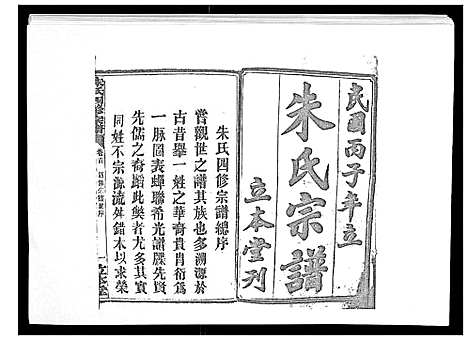 民國丙子年立
朱氏宗譜
立本堂刋
朱氏四修宗譜總序
嘗觀世之譜其族也多溯源於
古昔舉一姓之華裔貴胄衍為
一脈圖表蟬聯希光譜牒先賢
先儒之裔蹈此獘者尤多其實
同姓不宗源流舛錯本以求榮
朱氏四修宗譜
卷首